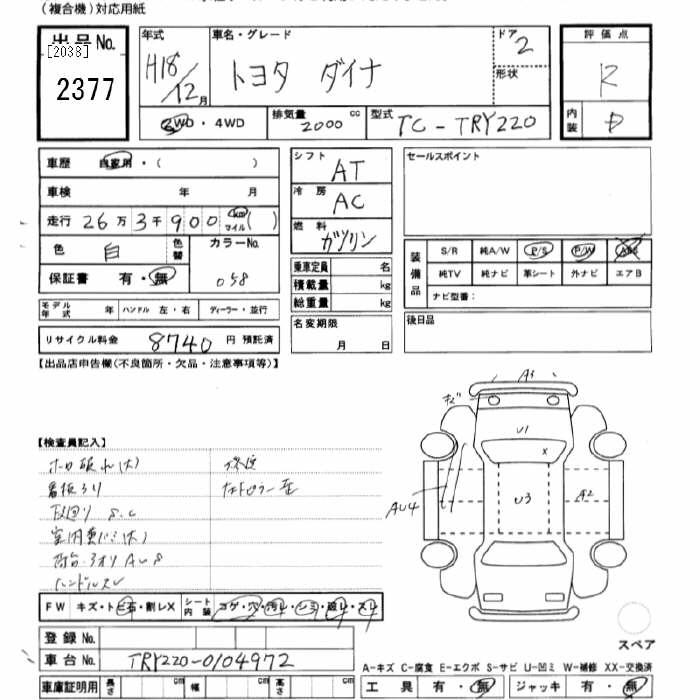 (複合機)対応用紙
出品No.
[2038]
2377
年式
H18/12月
車名・グレード
トヨタ ダイナ
ドア
2
形状
評価点
R
内装
D
2WD・4WD
排気量 2000 cc
型式 TC-TRY220
車歴 自家用・( )
車検 年 月
走行 26万3千900 km マイル ( )
色 白
色替
カラーNo.
058
保証書 有・無
モデル年式 年 ハンドル 左・右 ディーラー・並行
リサイクル料金 8740 円 預託済
シフト AT
冷房 AC
燃料 ガソリン
乗車定員 名
積載量 kg
総重量 kg
名変期限
月 日
セールスポイント
装備品
S/R 純A/W P/S P/W ABS
純TV 純ナビ 革シート 外ナビ エアB
ナビ型番:
後日品
【出品店申告欄(不良箇所・欠品・注意事項等)】
【検査員記入】
ホロ破れ(大)
看板うり
下廻り S.C
ハンドルスレ
FW キズ・トビ石・割レX シート内装 コゲ・穴・汚レ・シミ・破レ・スレ
登録No.
車台No. TRY220-0104972
車庫証明用 長さ cm 幅 cm 高さ cm
A3
U1
x
AU4
U3
A2
スペア
A-キズ C-腐食 E-エクボ S-サビ U-凹ミ W-補修 XX-交換済
工具 有・無 ジャッキ 有・無